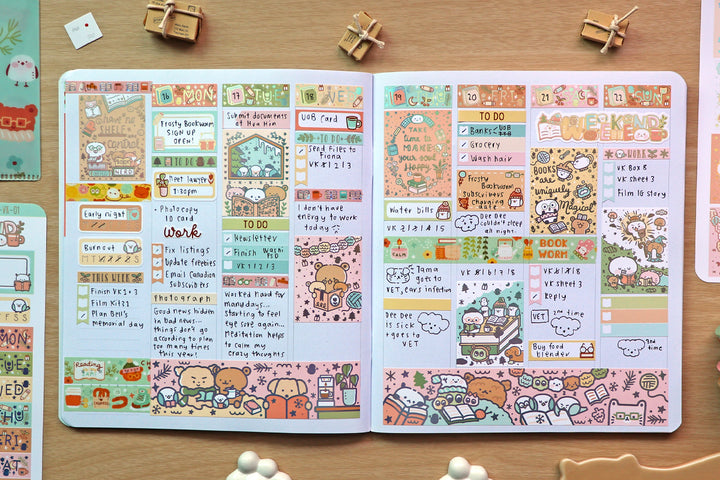 I have no
SHELF
control
NERD
Early night
Burnout
M T
THIS WEEK
Finish VK 2+3
Film Kit 21
Plan Bell's
memorial day
Reading
16 MON
Frosty Bookworm
SIGN UP
OPEN!
TO DO
Meet lawyer
1:30pm
+ Photocopy
ID card
work
Fix listings
Update freebies
Email Canadian
subscribers
Photograph
Good news hidden
in bad news...
things don't go
according to plan
too many times
this year!
17 TUE
Submit documents
at Hua Hin
TO DO
Newsletter
Finish Washi
PED
VK 1 2 1 3
Worked hard for
many days...
starting to feel
eye sore again...
Meditation helps
to calm my
crazy thoughts
18 WED
UOB Card
TO DO
Send files to
Fiona
VK 8 1 2 1 3
I don't have
energy to work
today
19 THU
TAKE
time to
MAKE
your soul
Happy
Water bills
CALM
Tama goes
to VET, ears infection
Dee Dee
is sick
+ goes to
VET
20 FRI
TO DO
Banks
UOB
Grocery
Wash hair
Frosty
Bookworm
subscribers
charging
day
Dee Dee
couldn't sleep
all night
21
WEEKEND
BOOKS
are
uniquely
Magical
BOOK
WORM
VK sheet 3
Reply
VET
2nd time
Buy food
blender
22 SUN
WORK
VK Box 8
VK sheet 3
Film IG story
3rd
time